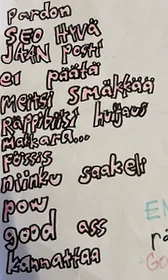 Pardon
SEO HYVÄ
JÄÄN posti
ei päätä
Meitsi smäkkää
Räppibiisi huijaus
makara...
Föisis
niinku saakeli
pow
good ass
kannattaa